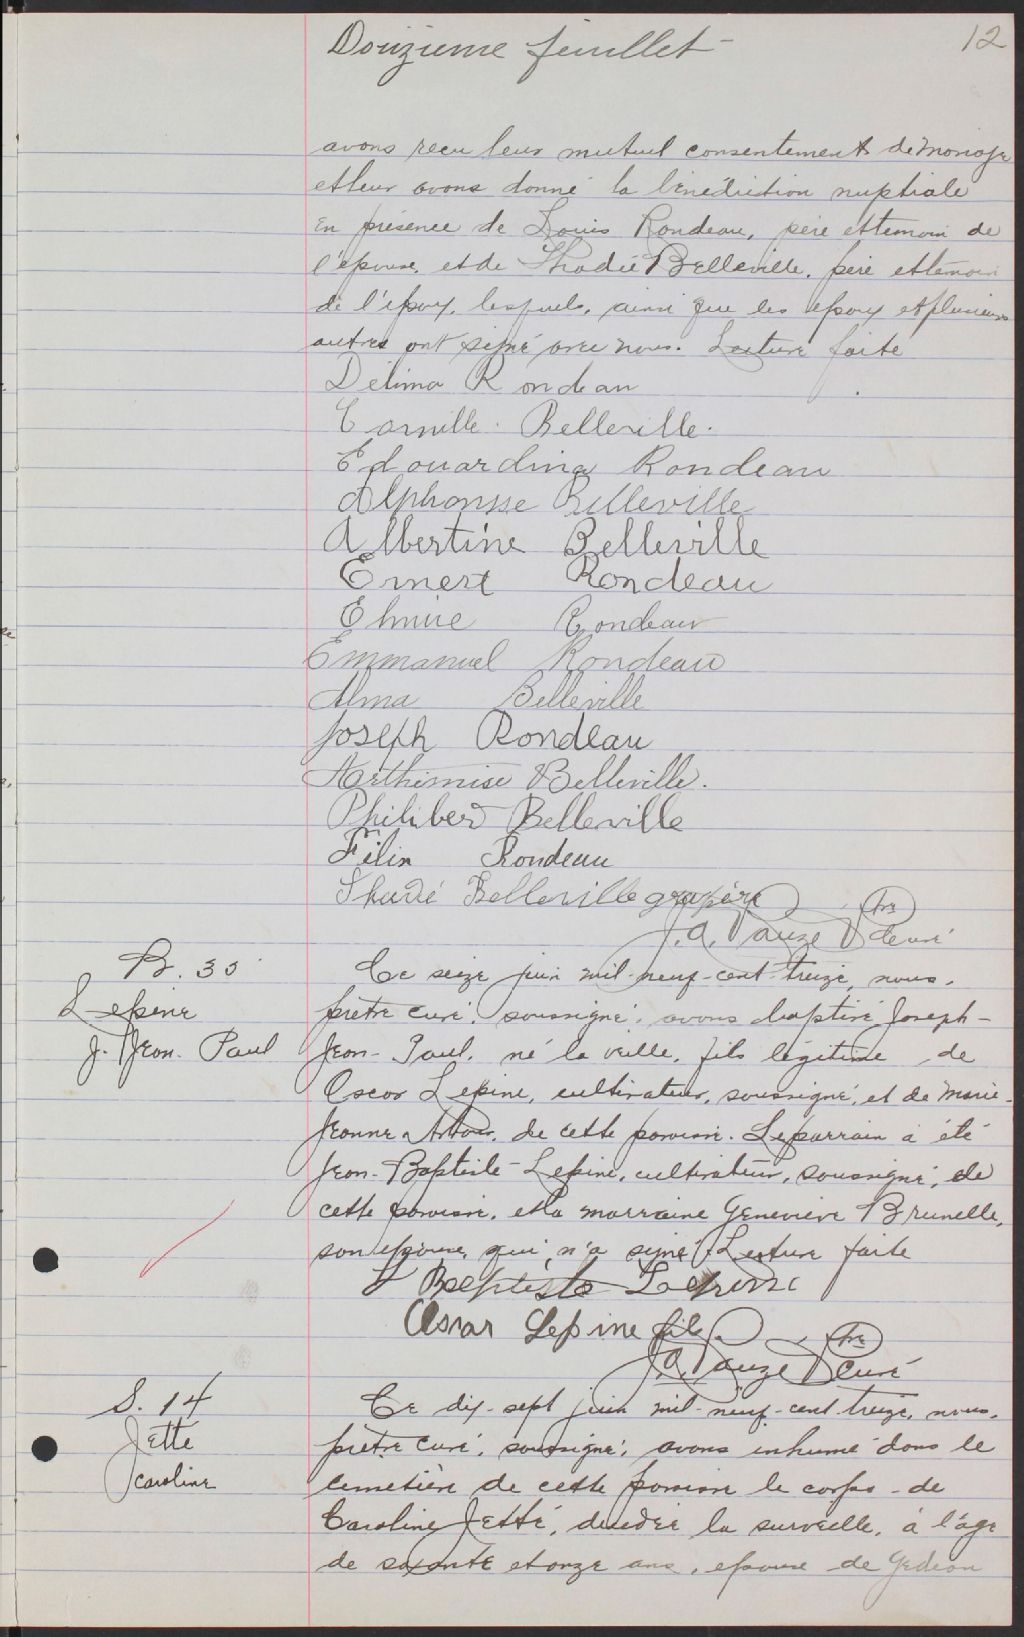 Douzième feuillet
12
avons reçu leur mutuel consentement de mariage
et leur avons donné la bénédiction nuptiale
en présence de Louis Rondeau, père et témoin de
l'épouse, et de Thadée Belleville, père et témoin
de l'époux, lesquels, ainsi que les époux et plusieurs
autres ont signé avec nous. Lecture faite
Délima Rondeau
Camille Belleville.
Edouardina Rondeau
Alphonsse Belleville
Albertine Belleville
Ernest Rondeau
Elmire Rondeau
Emmanuel Rondeau
Alma Belleville
Joseph Rondeau
Arthémise Belleville.
Philibert Belleville
Félix Rondeau
Thadé Belleville
J. A. Pauzé Ptre curé
B. 35
Lepine
J. Jean. Paul
Ce seize juin mil-neuf-cent-treize, nous,
prêtre curé, soussigné, avons baptisé Joseph-
Jean-Paul, né la veille, fils légitime de
Oscar Lepine, cultivateur, soussigné, et de Marie-
Jeanne, de cette paroisse. Le parrain a été
Jean-Baptiste-Lepine, cultivateur, soussigné, de
cette paroisse, et la marraine Geneviève Brunelle,
son épouse, qui n'a signé. Lecture faite
J Baptiste Lepine
Oscar Lepine fils
J. A. Pauzé Ptre curé
S. 14
Jetté
Caroline
Ce dix-sept juin mil-neuf-cent-treize, nous,
prêtre curé, soussigné, avons inhumé dans le
cimetière de cette paroisse le corps de
Caroline Jetté, décédée la surveille, à l'âge
de soixante et onze ans, épouse de Gédéon